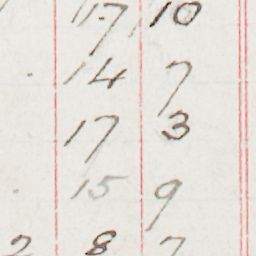 17 10
14 7
17 3
15 9
2 8 7